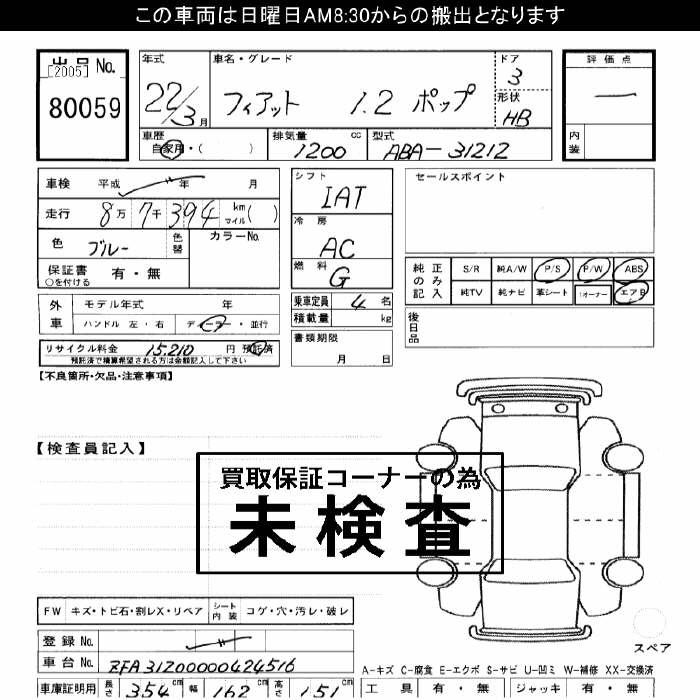 この車両は日曜日AM8:30からの搬出となります
出品 No.
[2005]
80059
年式
22/3月
車名・グレード
フィアット 1.2 ポップ
ドア
3
形状
HB
評価点
一
内装
車歴
自家用・( )
排気量 cc
1200
型式
ABA-31212
車検 平成 年 月
走行 8万7千394 km マイル( )
色 ブルー
色替
カラーNo.
保証書 有・無
○を付ける
シフト
IAT
冷房
AC
燃料
G
乗車定員 4名
積載量 kg
書類期限
月 日
セールスポイント
純正のみ記入
S/R 純A/W P/S P/W ABS
純TV 純ナビ 革シート 1オーナー エアB
後日品
外車
モデル年式 年
ハンドル 左・右 ディーラー・並行
リサイクル料金 15,210 円 預託済
預託済で積算希望される方は金額記入して下さい
【不良箇所・欠品・注意事項】
【検査員記入】
買取保証コーナーの為
未検査
FW キズ・トビ石・割レX・リペア シート内装 コゲ・穴・汚レ・破レ
登録 No.
車台 No. ZFA31200000424516
車庫証明用 長さ 354 cm 幅 162 cm 高さ 151 cm
スペア
A-キズ C-腐食 E-エクボ S-サビ U-凹ミ W-補修 XX-交換済
工具 有・無 ジャッキ 有・無